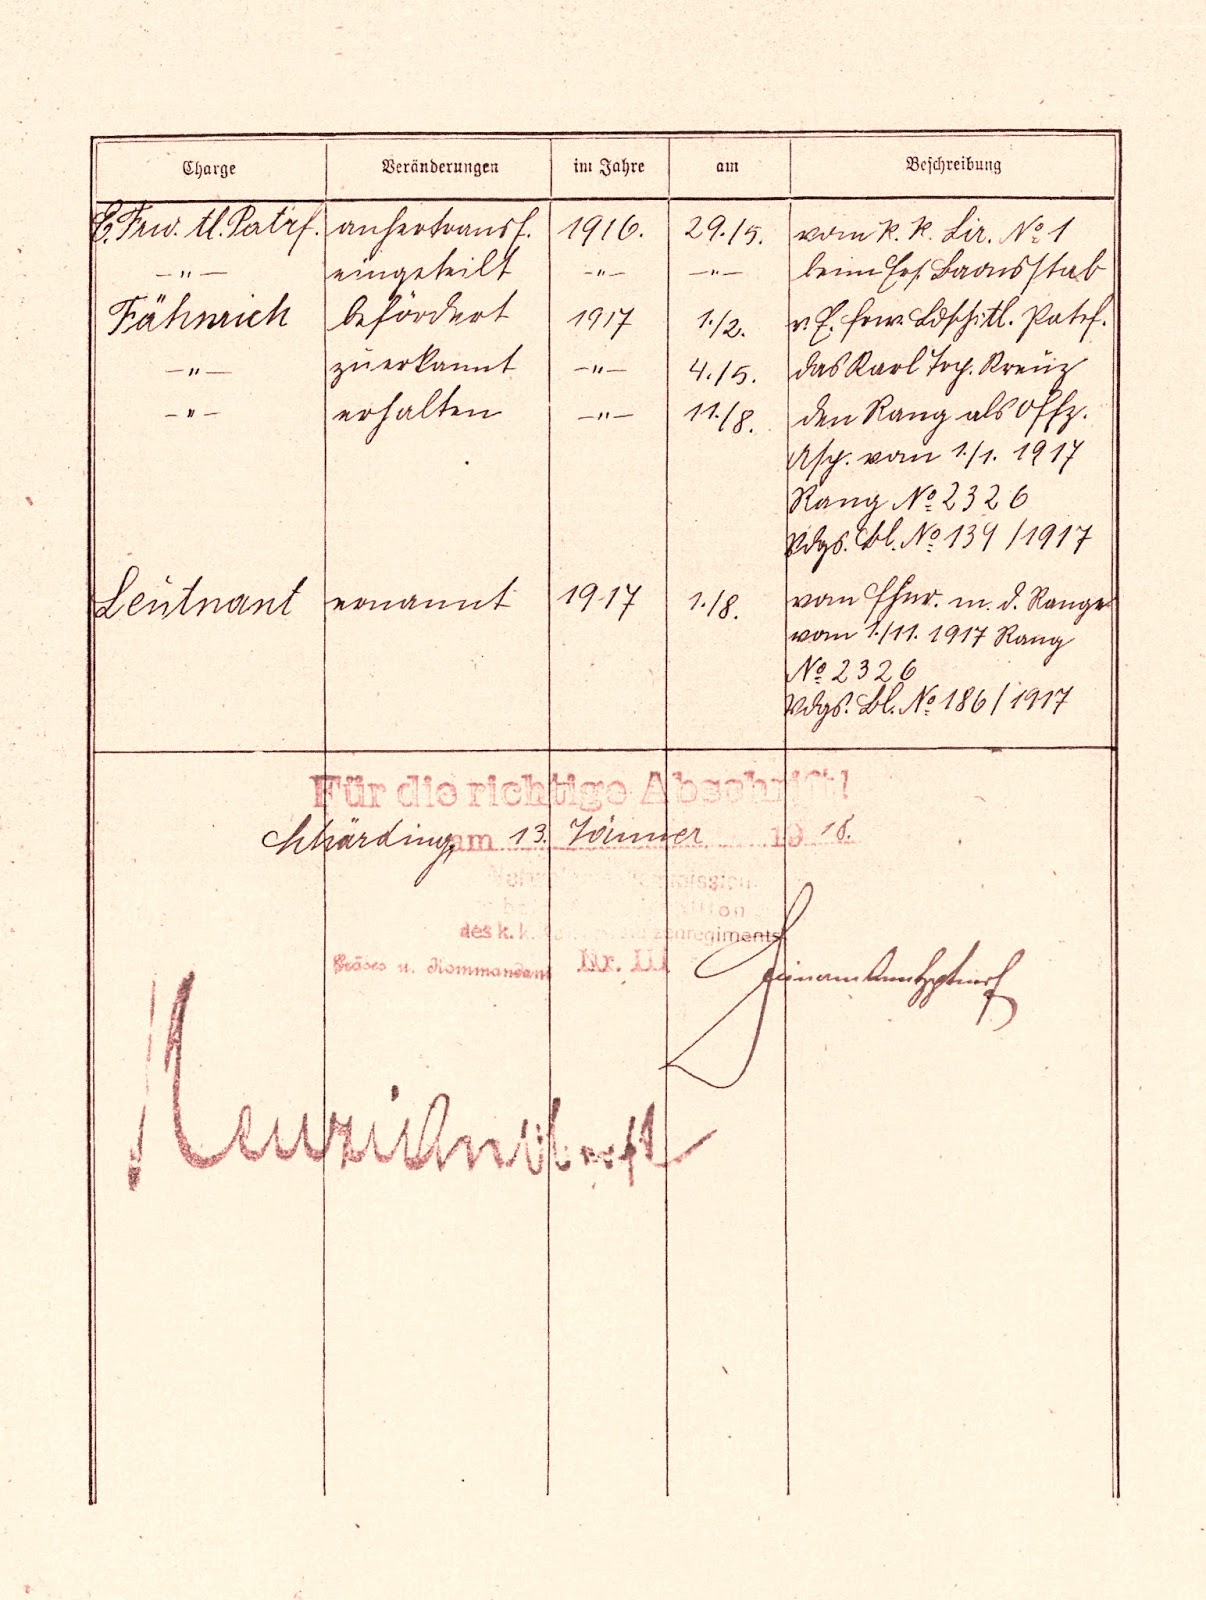 Charge Veränderungen im Jahre am Beschreibung
E. Frw. tl. Patrf. anhertransf. 1916. 29./5. vom k. k. Lir. No 1
—„— eingeteilt —„— —„— beim Ers. Baonsstab
Fähnrich befördert 1917 1./2. v. E. frw. Ldschtl. Patrf.
—„— zuerkannt —„— 4./5. das Karl Trp. Kreuz
—„— erhalten —„— 11./8. den Rang als Offz.
Asp. vom 1./1. 1917
Rang No 2326
Vdgs. Bl. No 139/1917
Leutnant ernannt 1917 1./8. vom Fhnr. m. d. Range
vom 1./11. 1917 Rang
No 2326
Vdgs. Bl. No 186/1917
Für die richtige Abschrift!
Schärding, am 13. Jänner 1918.
des k. k.
Präses u. Kommandant Nr. III